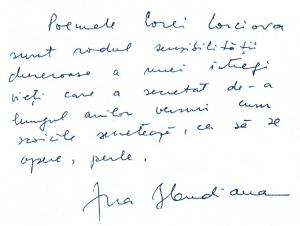 Poemele Corei Corciova
sunt rodul sensibilității
dureroase a unei întregi
vieți care a secretat de-a
lungul anilor versuri cum
scoicile secretează, ca să se
apere, perle.
Ana Blandiana